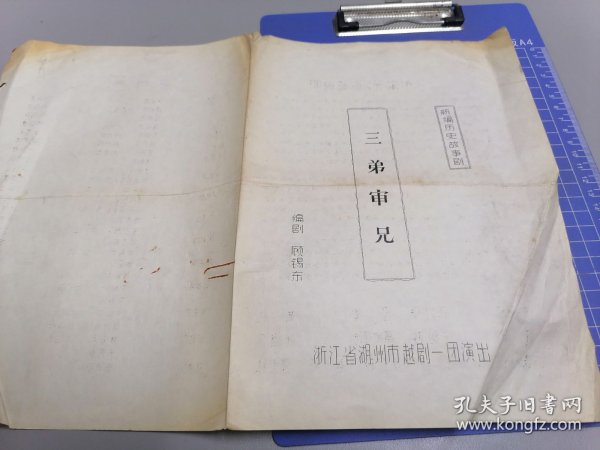 新编历史故事剧
三弟审兄
编剧 顾锡东
浙江省湖州市越剧一团演出
A4
孔夫子旧书网
www.kongfz.com